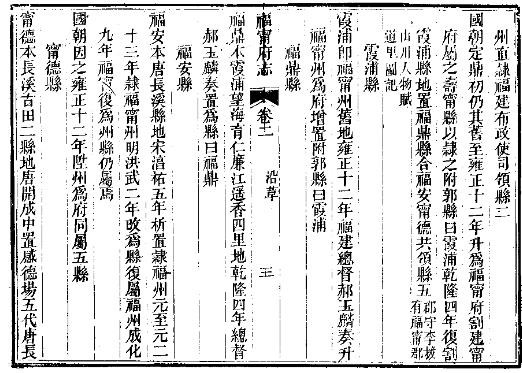 州直隸福建布政使司領縣二
國朝定鼎初仍其舊至雍正十二年升爲福甯府割建甯
府屬之壽甯縣以隸之附郭縣曰霞浦乾隆四年復割
霞浦縣地置福鼎縣合福安甯德共領縣五郡守李拔有福甯郡
山川人物賦
道里圖記
霞浦縣
霞浦卽福甯州舊地雍正十二年福建總督郝玉麟奏升
福甯州爲府增置附郭縣曰霞浦
福鼎縣
福甯府志
卷二
沿革
三
福鼎本霞浦望海育仁廉江遥香四里地乾隆四年總督
郝玉麟奏置爲縣曰福鼎
福安縣
福安本唐長溪縣地宋淳祐五年析置隸福州元至元二
十三年隸福甯州明洪武二年改爲縣復屬福州成化
九年福甯復爲州縣仍屬焉
國朝因之雍正十二年陞州爲府同屬五縣
甯德縣
甯德本長溪古田二縣地唐開成中置感德場五代唐長